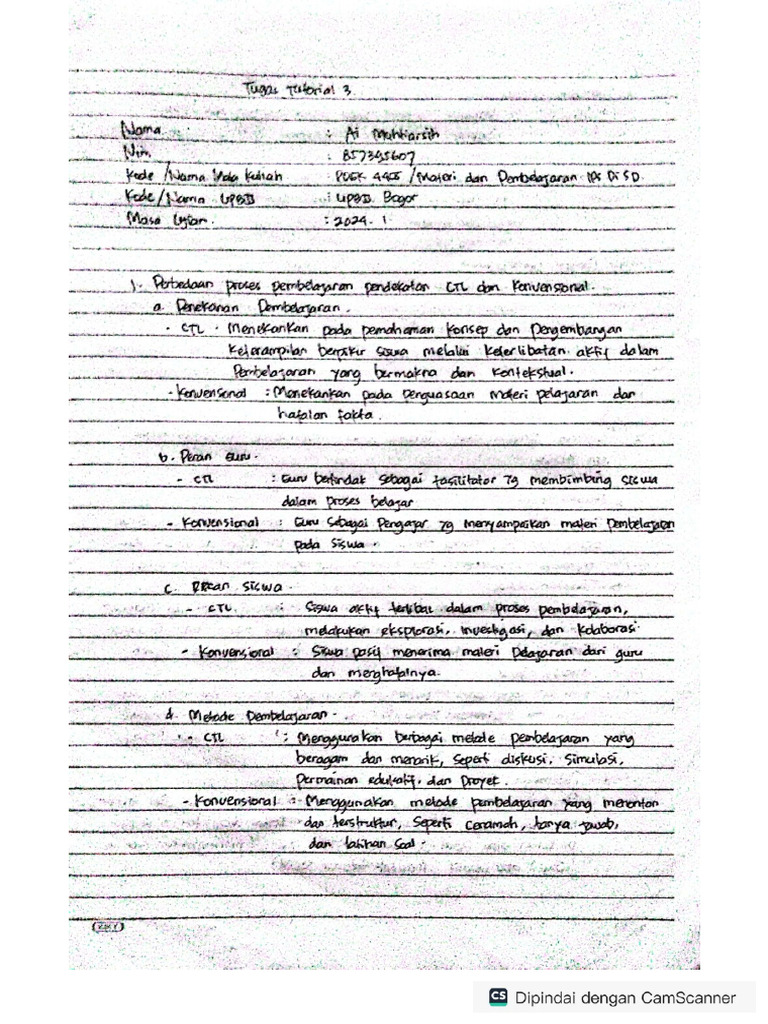 Tugas Tutorial 3
Nama : Ai Muhtiarsih
Nim : 857345607
Kode /Nama Mata Kuliah : PDGK 4405 /Materi dan Pembelajaran IPS Di SD.
Kode/Nama UPBJJ : UPBJJ Bogor
Masa Ujian. : 2024. 1
1. Perbedaan proses pembelajaran pendekatan CTL dan Konvensional.
a. Penekanan Pembelajaran.
- CTL : Menekankan pada pemahaman konsep dan Pengembangan
Keterampilan berpikir siswa melalui keterlibatan aktif dalam
Pembelajaran yang bermakna dan kontekstual.
- Konvensional : Menekankan pada penguasaan materi pelajaran dan
hafalan fakta.
b. Peran Guru.
- CTL : Guru bertindak sebagai fasilitator yg membimbing siswa
dalam proses belajar
- Konvensional : Guru sebagai Pengajar yg menyampaikan materi Pembelajaran
pada siswa.
c. Peran siswa.
- CTL : Siswa aktif terlibat dalam proses pembelajaran,
melakukan eksplorasi, investigasi, dan kolaborasi.
- Konvensional : Siswa pasif menerima materi pelajaran dari guru
dan menghafalnya.
d. Metode Pembelajaran.
- CTL : Menggunakan berbagai metode pembelajaran yang
beragam dan menarik, seperti diskusi, simulasi,
Permainan edukatif, dan Proyet.
- Konvensional : Menggunakan metode pembelajaran yang menonton
dan terstruktur, seperti ceramah, tanya jawab,
dan latihan soal.
KIKY
CS Dipindai dengan CamScanner